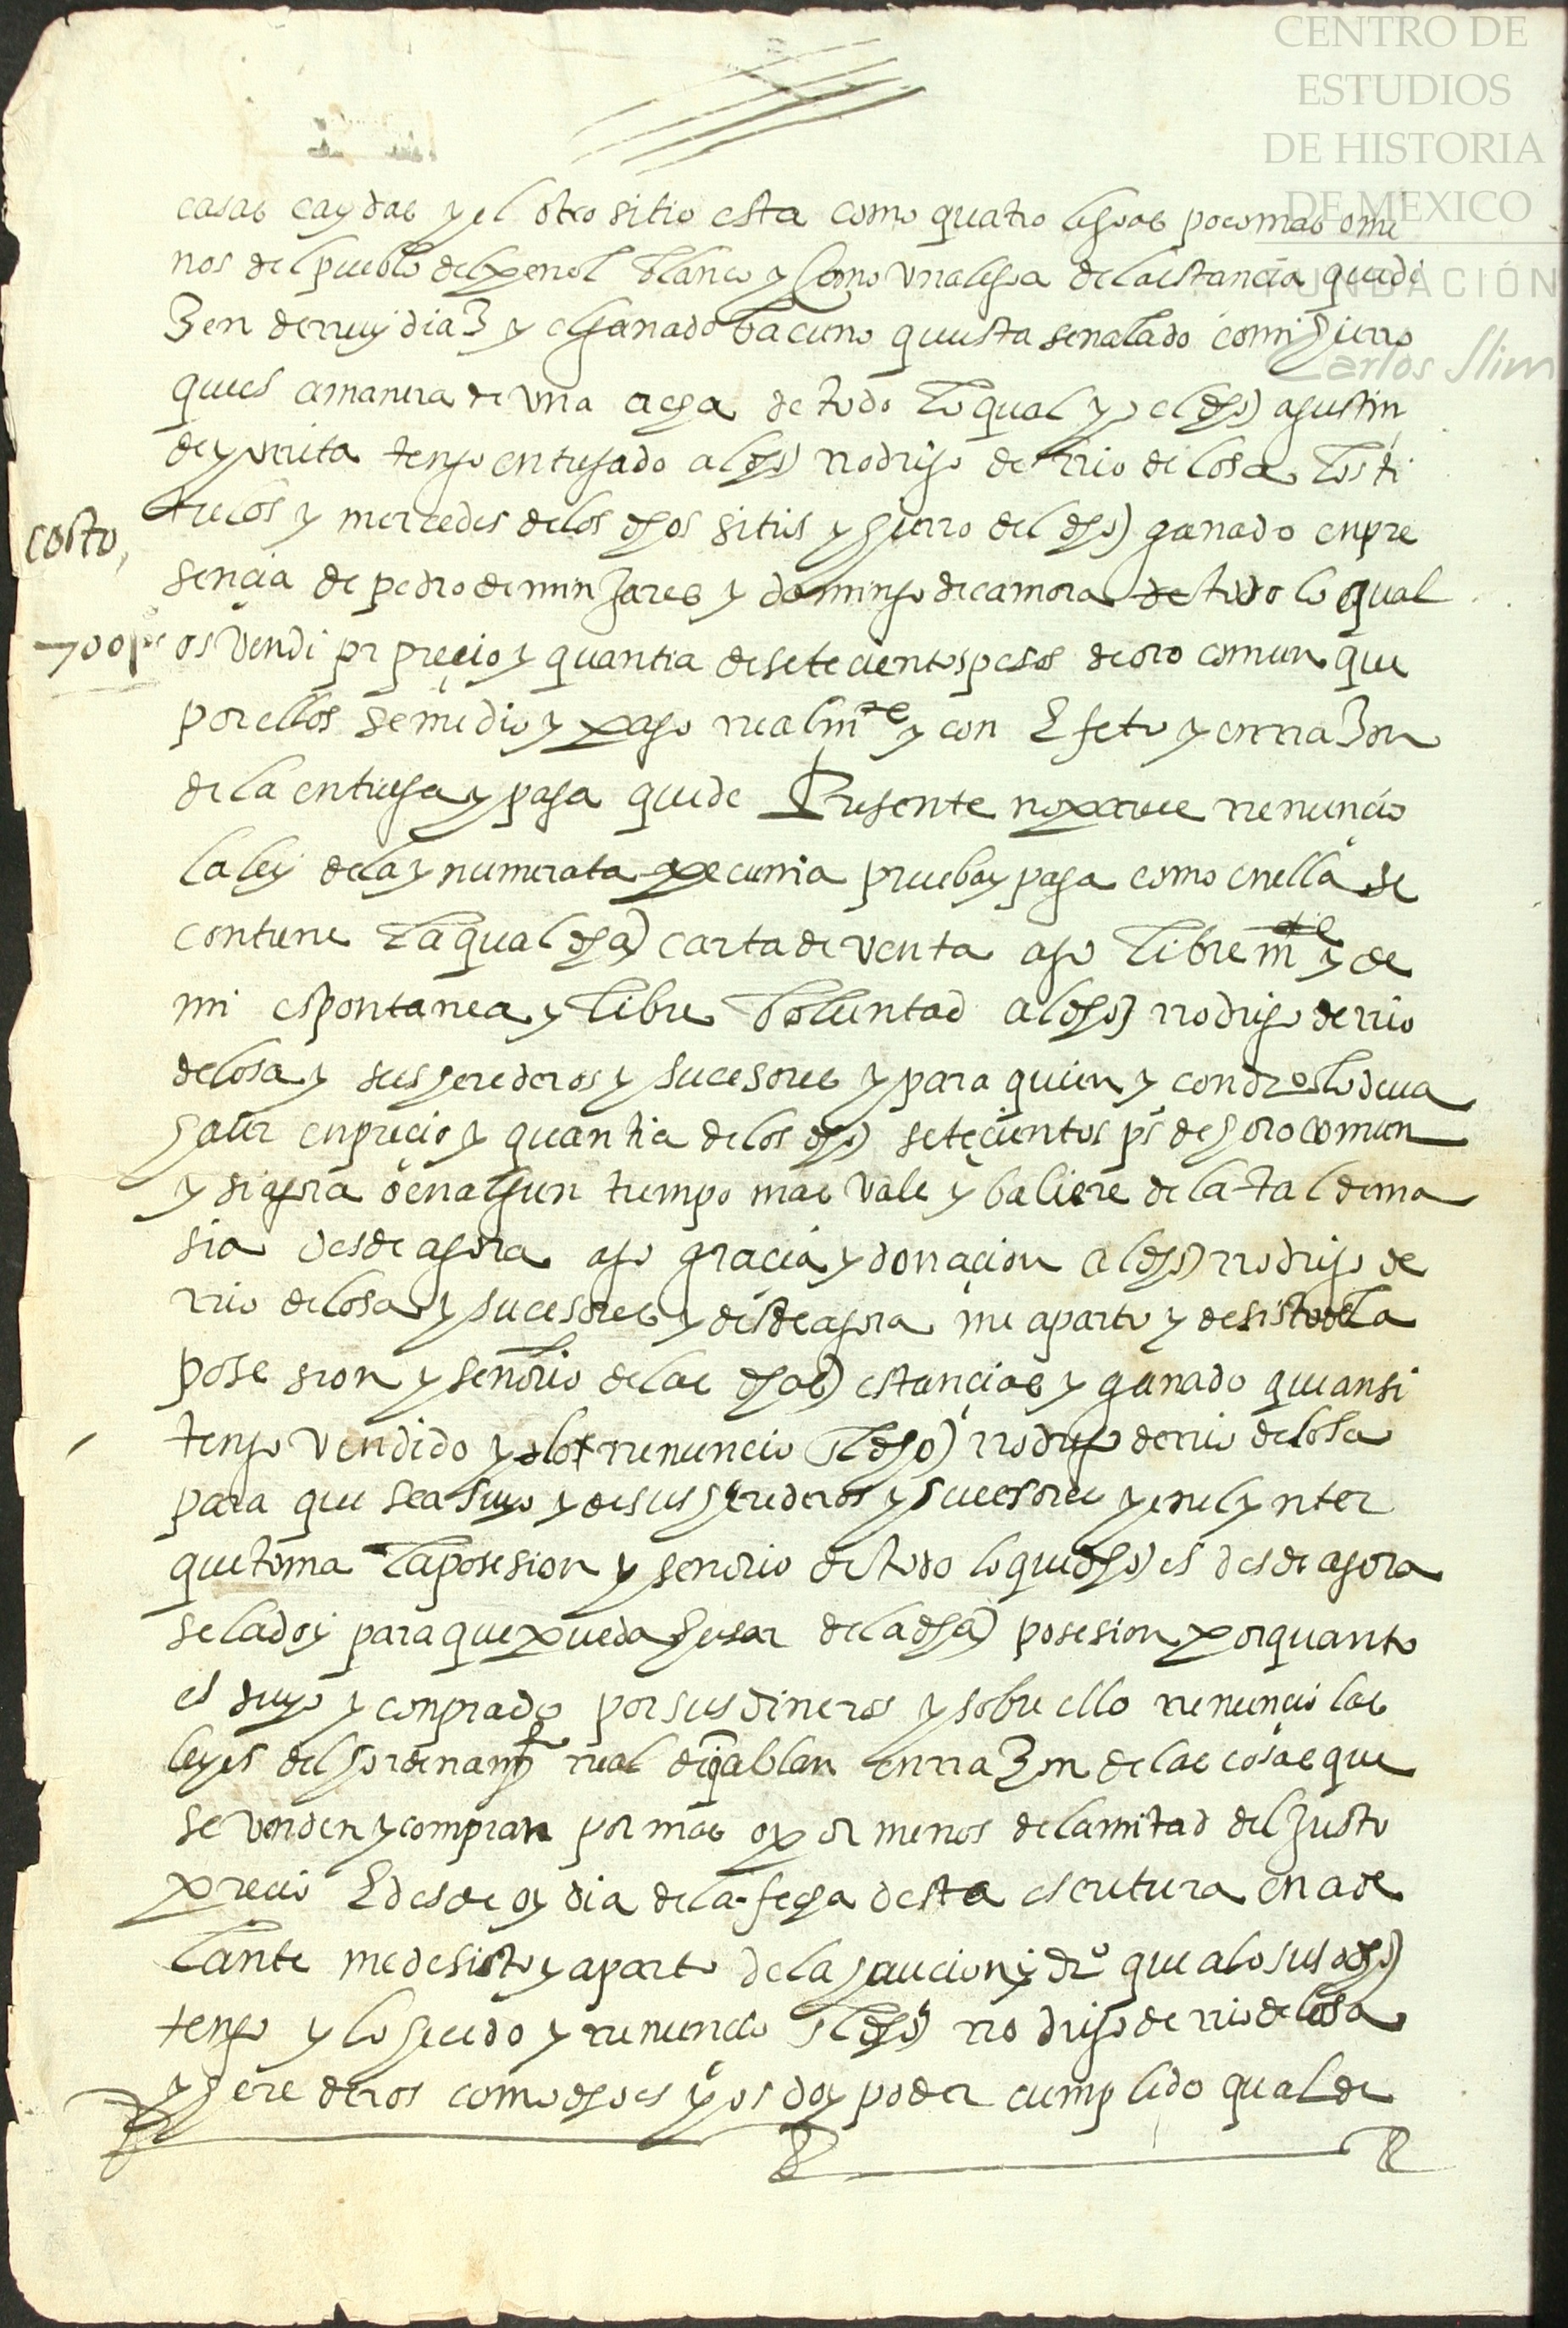 CENTRO DE
ESTUDIOS
DE HISTORIA
DE MEXICO
FUNDACIÓN
Carlos Slim
casas caydas y el otro sitio esta como quatro leguas poco mas o me
nos del pueblo del penol blanco y como una legua de la estancia que di
zen de rruy diaz y el ganado bacuno que esta senalado con mi hierro
que es a manera de una de todo lo qual yo el dho agustin
de yrrita tengo entregado al dho rrodrigo de rrio de losa los ti
tulos y mercedes de los dhos sitios y hierro del dho ganado en pre
costo,
sencia de pedro de minjares y domingo de camora de todo lo qual
700 ps
os vendi por precio y quantia de setecientos pesos de oro comun que
por ellos se me dio y pago realmte y con Efeto y en rrazon
de la entrega y paga que de Presente no parece rrenuncio
la ley de la ynumerata pecunia prueba y paga como en ella se
contiene la qual dha carta de venta ago libremte y de
mi espontanea y libre boluntad al dho rrodrigo de rrio
de losa y sus herederos y sucesores y para quien y con dro lo deva
haver en precio y quantia de los dhos setecientos ps de horo comun
y si agora o en algun tiempo mas vale y baliere de la tal dema
sia desde agora ago gracia y donacion al dho rrodrigo de
rrio de losa y sucesores y desde agora me aparto y desisto de la
posesion y senorio de las dhas estancias y ganado que ansi
tengo vendido y lo rrenuncio Al dho rrodrigo de rrio de losa
para que sea suyo y de sus herederos y sucesores y en el ynter
que toma la posesion y senorio de todo lo que dho es desde agora
se la doy para que pueda husar de la dha posesion por quanto
es suyo y conprado por sus dineros y sobre ello rrenuncio las
leyes del hordenamto real que hablan en rrazon de las cosas que
se venden y compran por mas o por menos de la mitad del justo
precio E desde oy dia de la fecha desta escritura en ade
lante me desisto y aparto de la haucion y dro que a lo susodho
tengo y lo sedo y rrenuncio Al dho rrodrigo de rrio de losa
y herederos como dho es y os doy poder cumplido qual de